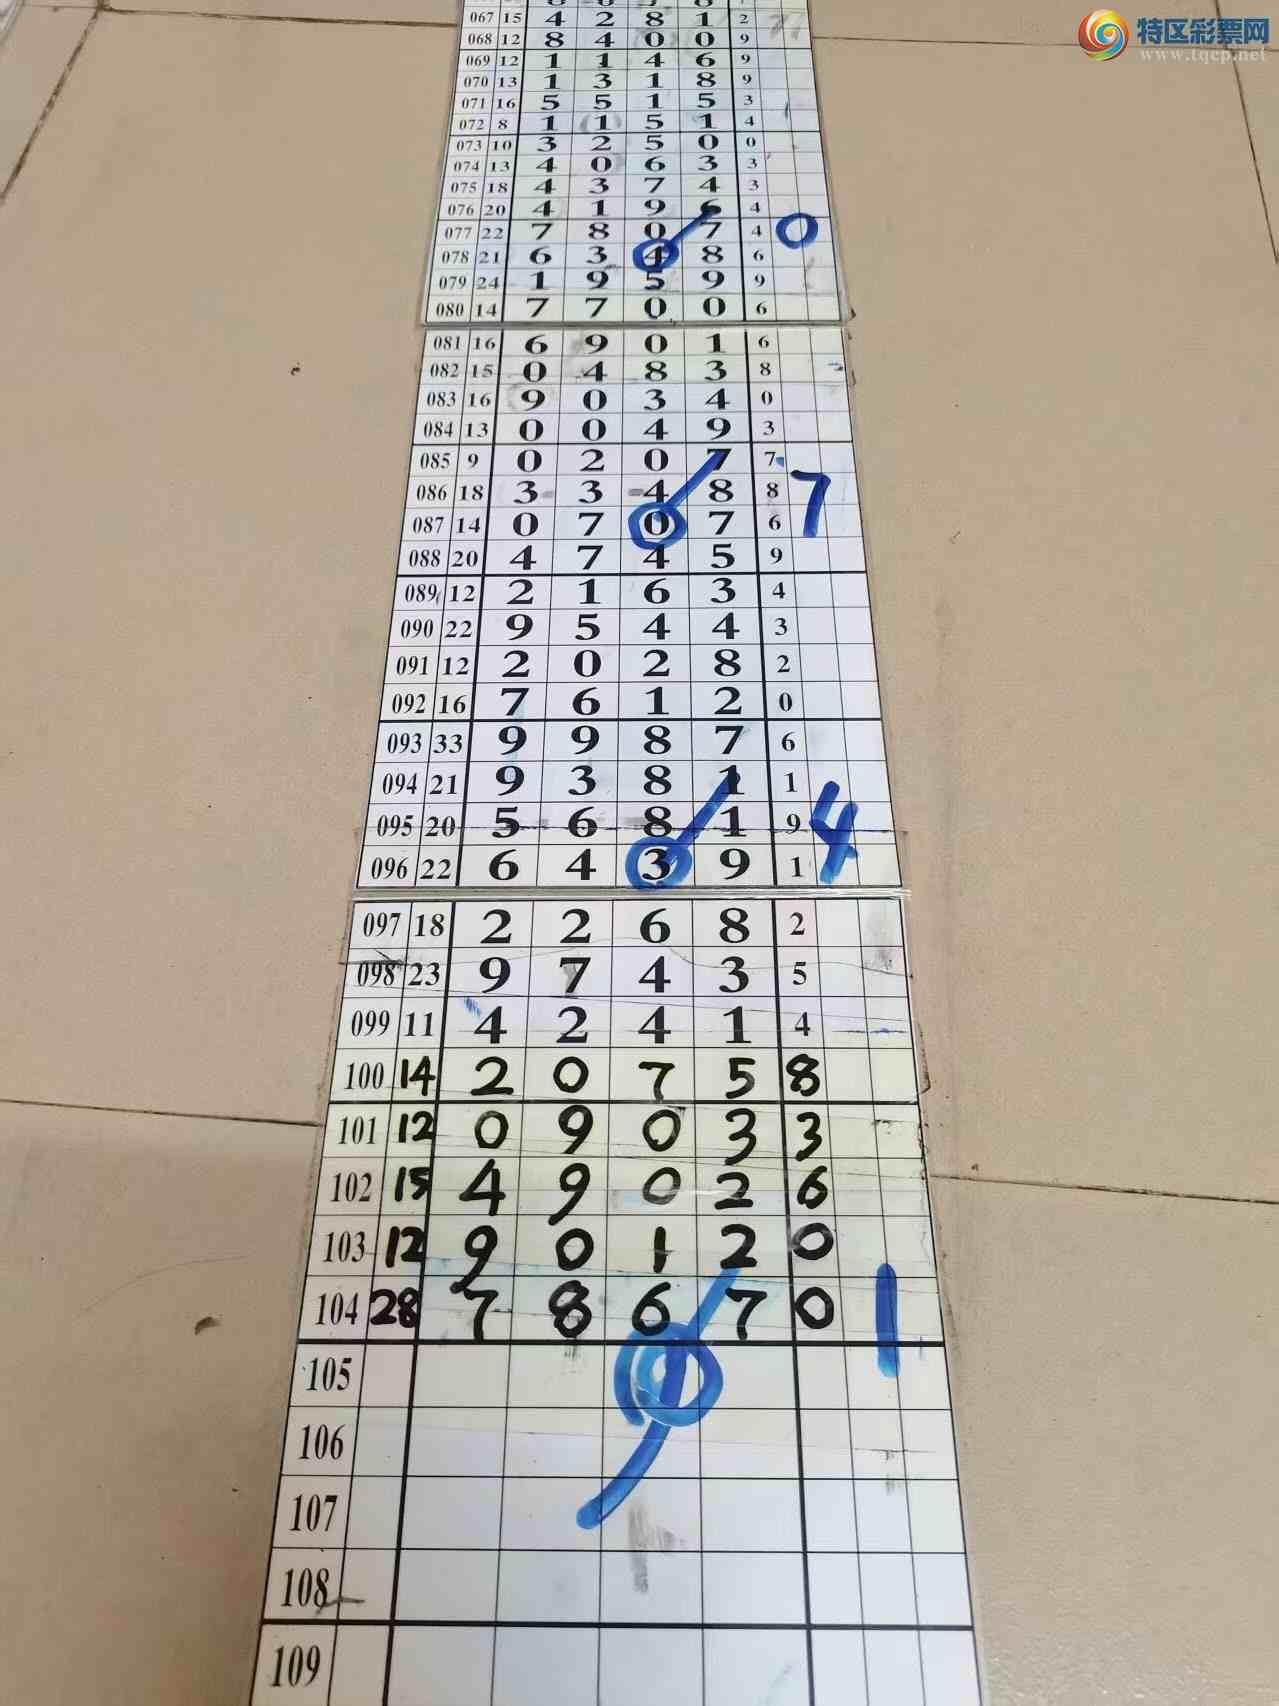 特区彩票网
www.tqcp.net
067 15 4 2 8 1 2
068 12 8 4 0 0 9
069 12 1 1 4 6 9
070 13 1 3 1 8 9
071 16 5 5 1 5 3
072 8 1 1 5 1 4
073 10 3 2 5 0 0
074 13 4 0 6 3 3
075 18 4 3 7 4 3
076 20 4 1 9 6 4
077 22 7 8 0 7 4 0
078 21 6 3 4 8 6
079 24 1 9 5 9 9
080 14 7 7 0 0 6
081 16 6 9 0 1 6
082 15 0 4 8 3 8
083 16 9 0 3 4 0
084 13 0 0 4 9 3
085 9 0 2 0 7 7
086 18 3 3 4 8 8 7
087 14 0 7 0 7 6
088 20 4 7 4 5 9
089 12 2 1 6 3 4
090 22 9 5 4 4 3
091 12 2 0 2 8 2
092 16 7 6 1 2 0
093 33 9 9 8 7 6
094 21 9 3 8 1 1
095 20 5 6 8 1 9 4
096 22 6 4 3 9 1
097 18 2 2 6 8 2
098 23 9 7 4 3 5
099 11 4 2 4 1 4
100 14 2 0 7 5 8
101 12 0 9 0 3 3
102 15 4 9 0 2 6
103 12 9 0 1 2 0
104 28 7 8 6 7 0 1
105
106
107
108
109